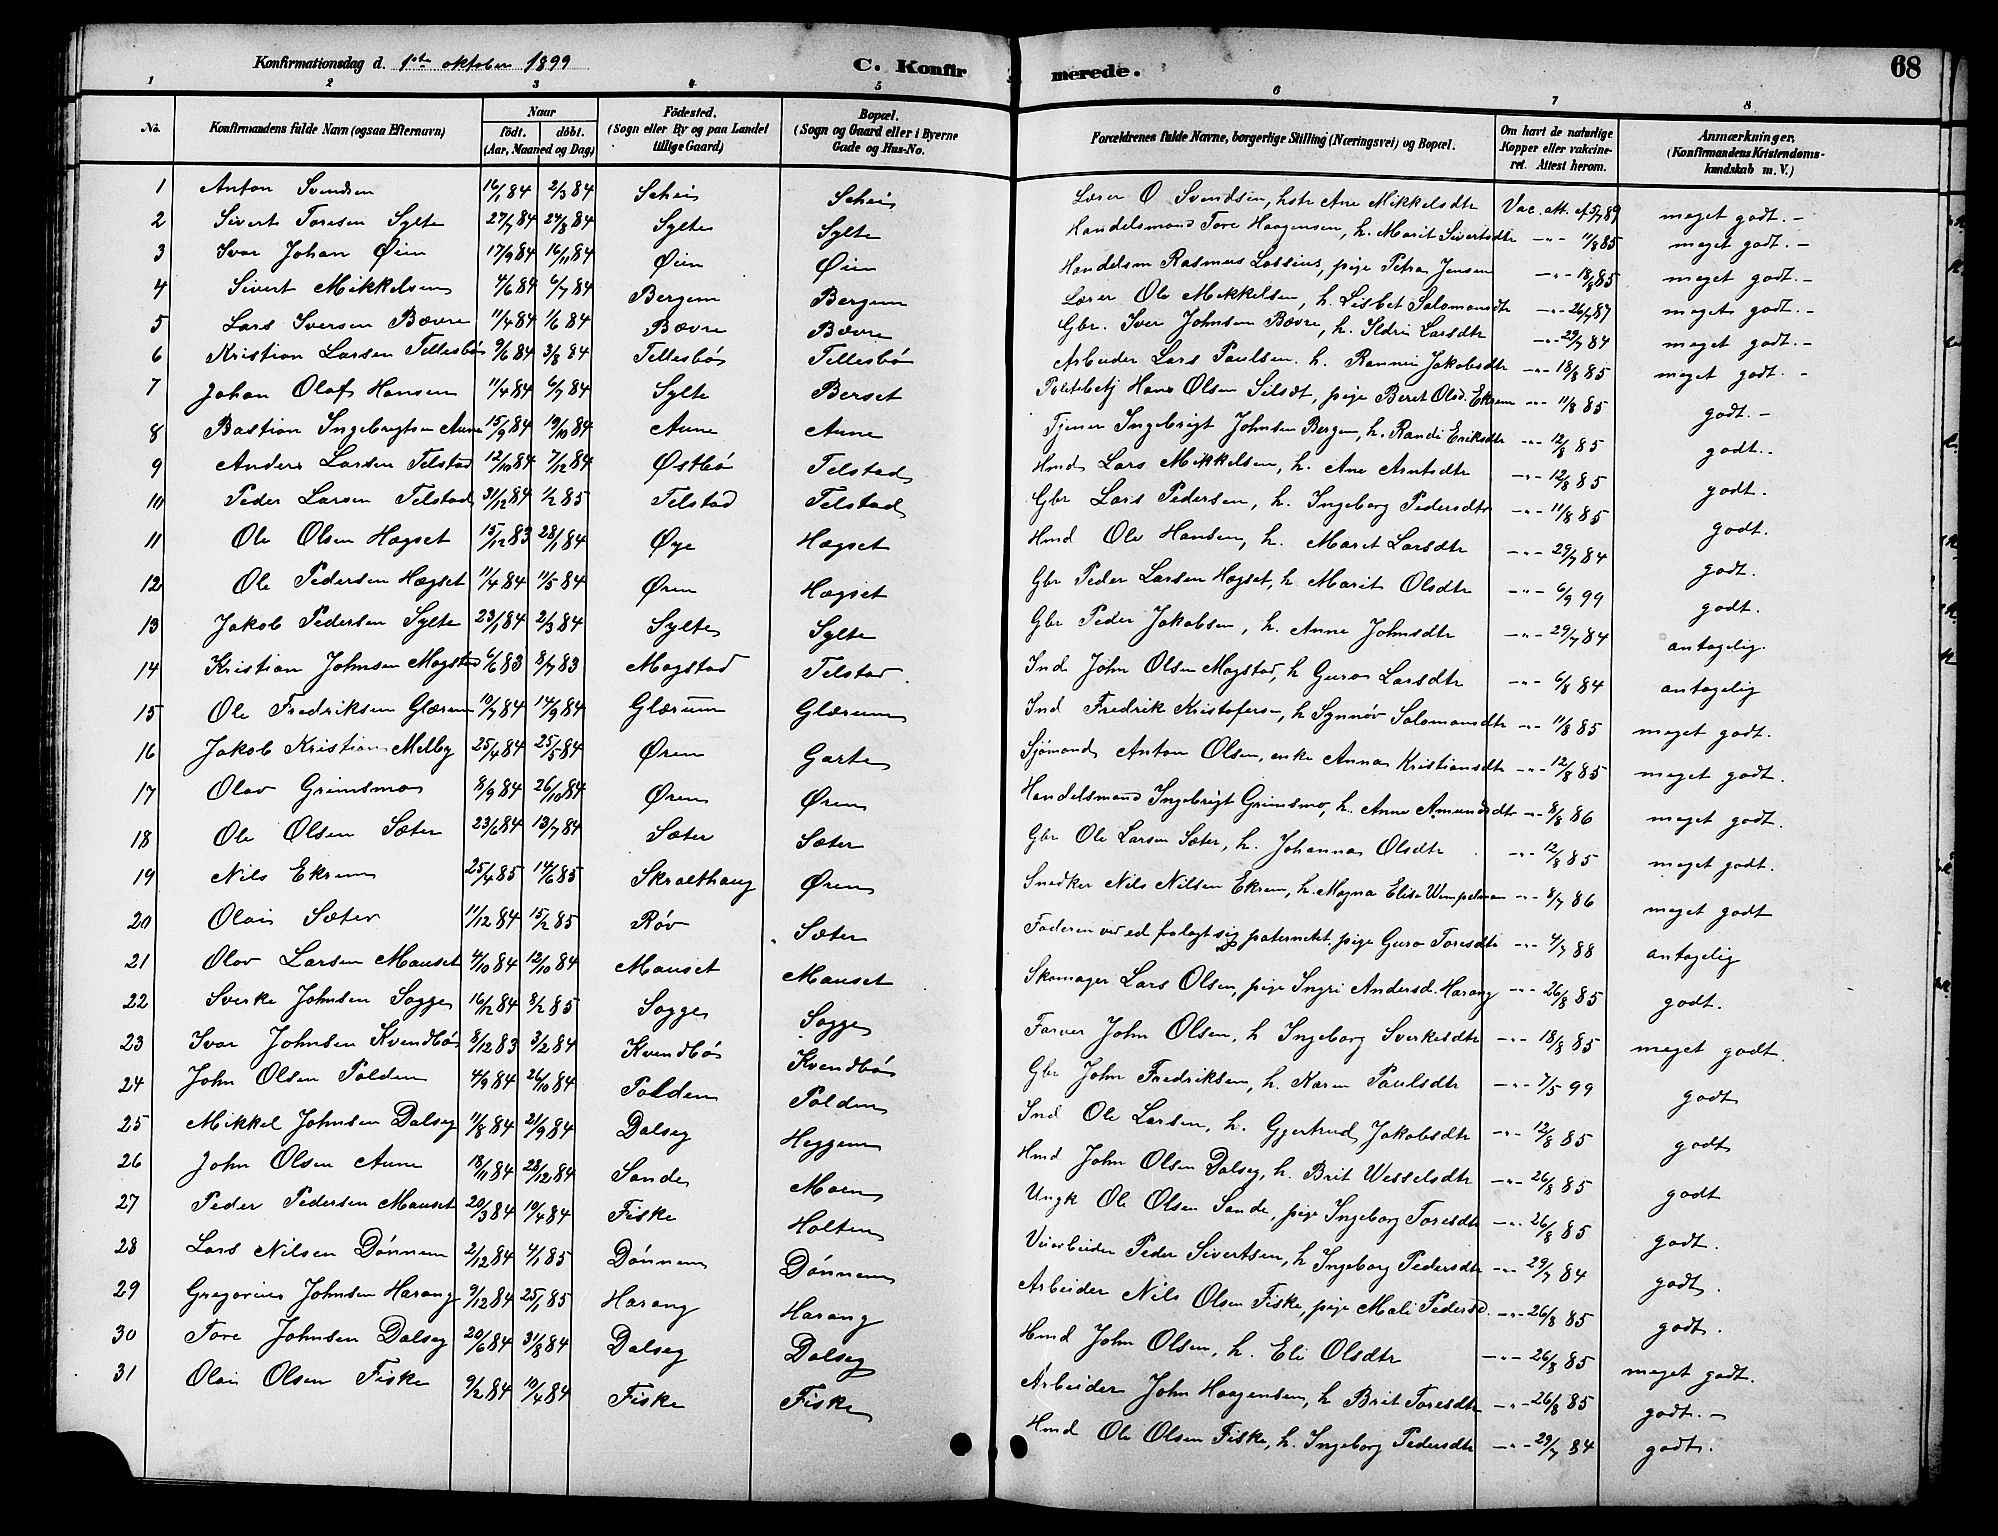 Konfirmationsdag d. 1ste oktober 1899
C. Konfirmerede.
68
1 2 3 4 5 6 7 8
No. Konfirmandens fulde Navn (ogsaa Efternavn) Naar födt. döbt. (Aar, Maaned og Dag) Födested. (Sogn eller By og paa Landet tillige Gaard) Bopæl. (Sogn og Gaard eller i Byerne Gade og Hus-No. Forældrenes fulde Navne, borgerlige Stilling (Næringsvei) og Bopæl. Om havt de naturlige Kopper eller vakcineret. Attest herom. Anmærkninger, (Konfirmandens Kristendomskundskab m. V.)
1 Anton Svendsen 16/1 84 2/3 84 Schei Schei Lærer O Svendsen, hstr Ane Mikkelsdtr Vac. att. af 5/7 89 meget godt. -
2 Sivert Toresen Sylte 27/7 84 24/8 84 Sylte Sylte Handelsmand Tore Haagensen, h. Marit Sivertsdtr -"- 11/8 85 meget godt. -
3 Ivar Johan Øien 17/9 84 16/11 84 Øien Øien Handelsm Rasmus Lossius, pige Petra Jensen -"- 18/8 85 meget godt. -
4 Sivert Mikkelsen 4/6 84 6/7 84 Bergem Bergem Lærer Ole Mikkelsen, h. Lisbet Salomonsdtr -"- 26/7 87 meget godt. -
5 Lars Iversen Bævre 11/4 84 1/6 84 Bævre Bævre Gbr. Iver Johnsen Bævre, h. Sldri Larsdtr -"- 29/7 84 meget godt. -
6 Kristian Larsen Tellesbø 9/6 84 3/8 84 Tellesbø Tellesbø Arbeider Lars Paulsen. h. Rannei Jakobsdtr -"- 18/8 85 meget godt. -
7 Johan Olaf Hansen 11/4 84 6/7 84 Sylte Berset Politibetj Hans Olsen Silsdt, pige Beret Olsd. Ekrem -"- 11/8 85 godt. -
8 Bastian Ingebrigtsen Aune 15/9 84 19/10 84 Aune Aune Tjener Ingebrigt Johnsen Bergem, h. Randi Eriksdtr -"- 12/8 85 godt. -
9 Anders Larsen Telstad 12/10 84 7/12 84 Østbø Telstad Hmd Lars Mikkelsen, h. Ane Arntsdtr -"- 12/8 85 godt.
10 Peder Larsen Telstad 31/12 84 1/2 85 Telstad Telstad Gbr Lars Pedersen, h. Ingeborg Pedersdtr -"- 11/8 85 godt.
11 Ole Olsen Hægset 15/12 83 28/1 84 Øye Hægset Hmd Ole Hansen, h. Marit Larsdtr -"- 29/7 84 godt.
12 Ole Pedersen Hægset 11/4 84 11/5 84 Øren Hægset Gbr Peder Larsen Hægset, h Marit Olsdtr -"- 6/9 99 godt.
13 Jakob Pedersen Sylte 23/1 84 2/3 84 Sylte Sylte Gbr Peder Jakobsen, h. Anne Johnsdtr -"- 29/7 84 antagelig.
14 Kristian Johnsen Mogstad 6/6 83 8/7 83 Mogstad Telstad. Ind John Olsen Mogstad, h Guro Larsdtr -"- 6/8 84 antagelig
15 Ole Fredriksen Glærum 10/7 84 14/9 84 Glærum Glærum Ind Fredrik Kristofersen, h Synnøv Salomonsdtr -"- 11/8 85 meget godt.
16 Jakob Kristian Melby 25/4 84 25/5 84 Øren Garte Sjømand Anton Olsen, enke Anna Kristiansdtr -"- 12/8 85 meget godt.
17 Olav Grimsmo 8/9 84 26/10 84 Øren Øren Handelsmand Ingebrigt Grimsmo, h. Anne Amundsdtr -"- 8/8 86 meget godt.
18 Ole Olsen Sæter 23/6 84 13/7 84 Sæter Sæter Gbr Ole Larsen Sæter, h. Johanna Olsdtr -"- 12/8 85 meget godt.
19 Nils Ekrem 25/4 85 14/6 85 Skralthaug Øren Snedker Nils Nilsen Ekrem, h. Magna Elisa Wimpelman -"- 8/7 86 meget godt
20 Olai Sæter 11/12 84 15/2 85 Røv Sæter Faderen ved ed fralagt sig paternitet, pige Guro Toresdtr -"- 4/7 88 antagelig
21 Olav Larsen Mauset 4/10 84 12/10 84 Mauset Mauset Skomager Lars Olsen, pige Ingri Andersd. Harang -"- 26/8 85 godt.
22 Sverke Johnsen Sogge 16/12 84 8/2 85 Sogge Sogge Farver John Olsen, h Ingeborg Sverkesdtr -"- 18/8 85 meget godt.
23 Ivar Johnsen Kvendbø 8/12 83 3/2 84 Kvendbø Kvendbø Gbr John Fredriksen, h. Karen Paulsdtr -"- 7/5 99 godt
24 John Olsen Polden 4/9 84 26/10 84 Polden Polden Ind Ole Larsen, h. Gjertrud Jakobsdtr -"- 12/8 85 godt
25 Mikkel Johnsen Dalseg 11/8 84 21/9 84 Dalseg Heggem Hmd John Olsen Dalseg, h. Brit Wesselsdtr -"- 26/8 85 godt
26 John Olsen Aune 18/11 84 28/12 84 Sande Moen Ungk Ole Olsen Sande, pige Ingeborg Toresdtr -"- 26/8 85 godt.
27 Peder Pedersen Mauset 20/3 84 10/4 84 Fiske Holten Veiarbeider Peder Sivertsen, h Ingeborg Pedersdtr -"- 29/7 84 godt.
28 Lars Nilsen Dönnem 2/12 84 4/1 85 Dönnem Dönnem Arbeider Nils Olsen Fiske, pige Mali Pedersd. -"- 26/8 85 godt.
29 Gregorius Johnsen Harang 9/12 84 25/1 85 Harang Harang Hmd John Olsen, h. Eli Olsdtr -"- 26/8 85 meget godt.
30 Tore Johnsen Dalseg 20/6 84 31/8 84 Dalseg Dalseg Arbeider John Haagensen, h Brit Toresdtr -"- 26/8 85 godt. -
31 Olai Olsen Fiske 9/2 84 10/4 84 Fiske Fiske Hmd Ole Olsen Fiske, h. Ingeborg Pedersdtr -"- 29/7 84 godt.